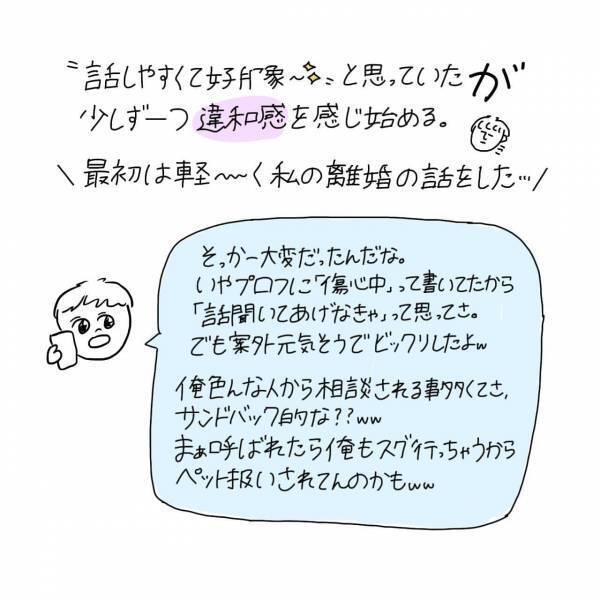 "話しやすくて好印象〜✨"と思っていたが
少しずーつ違和感を感じ始める。
\最初は軽〜〜く私の離婚の話をした…/
そっかー大変だったんだな。
いやプロフに「傷心中」って書いてたから
「話聞いてあげなきゃ」って思ってさ。
でも案外元気そうでビックリしたよw
俺色んな人から相談される事多くてさ、
サンドバック的な??ww
まぁ呼ばれたら俺もスグ行っちゃうから
ペット扱いされてんのかもww